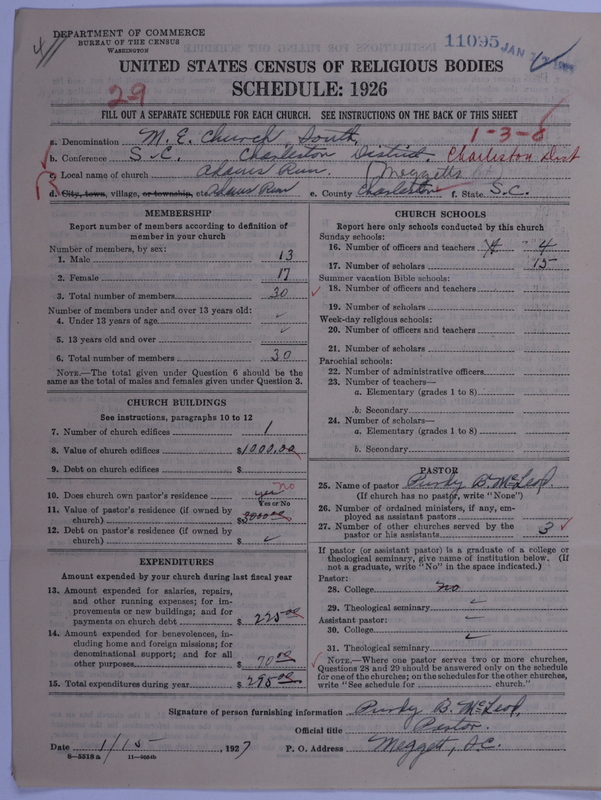 DEPARTMENT OF COMMERCE
BUREAU OF THE CENSUS
WASHINGTON
11095 JAN
UNITED STATES CENSUS OF RELIGIOUS BODIES
SCHEDULE: 1926
29
FILL OUT A SEPARATE SCHEDULE FOR EACH CHURCH. SEE INSTRUCTIONS ON THE BACK OF THIS SHEET
a. Denomination M. E. Church, South, 1-3-8
b. Conference S.C. Charleston District. Charleston Dist
c. Local name of church Adams Run. (Meggetts
d. City, town, village, or township, etc. Adams Run e. County Charleston f. State S.C.
MEMBERSHIP
Report number of members according to definition of
member in your church
Number of members, by sex:
1. Male 13
2. Female 17
3. Total number of members 30
Number of members under and over 13 years old:
4. Under 13 years of age ✓
5. 13 years old and over ✓
6. Total number of members 30
NOTE.—The total given under Question 6 should be
the same as the total of males and females given under Question 3.
CHURCH BUILDINGS
See instructions, paragraphs 10 to 12
7. Number of church edifices 1
8. Value of church edifices $1000.00
9. Debt on church edifices $
10. Does church own pastor's residence yes no
Yes or No
11. Value of pastor's residence (if owned by
church) $3000.00
12. Debt on pastor's residence (if owned by
church) $ ✓
EXPENDITURES
Amount expended by your church during last fiscal year
13. Amount expended for salaries, repairs,
and other running expenses; for im-
provements or new buildings; and for
payments on church debt $ 225.00
14. Amount expended for benevolences, in-
cluding home and foreign missions; for
denominational support; and for all
other purposes $ 70.00
15. Total expenditures during year $ 295.00
CHURCH SCHOOLS
Report here only schools conducted by this church
Sunday schools:
16. Number of officers and teachers 4 4
17. Number of scholars 15
Summer vacation Bible schools:
18. Number of officers and teachers
19. Number of scholars
Week-day religious schools:
20. Number of officers and teachers
21. Number of scholars
Parochial schools:
22. Number of administrative officers
23. Number of teachers—
a. Elementary (grades 1 to 8)
b. Secondary
24. Number of scholars—
a. Elementary (grades 1 to 8)
b. Secondary
PASTOR
25. Name of pastor Purdy B. McLeod.
(If church has no pastor, write "None")
26. Number of ordained ministers, if any, em-
ployed as assistant pastors
27. Number of other churches served by the
pastor or his assistants 3
If pastor (or assistant pastor) is a graduate of a college or
theological seminary, give name of institution below. (If
not a graduate, write "No" in the space indicated.)
Pastor:
28. College no
29. Theological seminary ✓
Assistant pastor:
30. College ✓
31. Theological seminary ✓
NOTE.—Where one pastor serves two or more churches,
Questions 28 and 29 should be answered only on the schedule
for one of the churches; on the schedules for the other churches,
write "See schedule for church."
Signature of person furnishing information Purdy B. McLeod,
Official title Pastor.
Date 1/15-, 1927 P. O. Address Meggett, S.C.
8—5518a 11—9684b